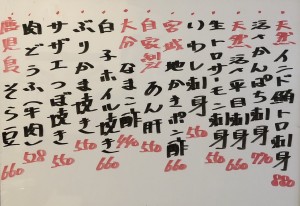 天然インド鮪トロ刺身 880
活〆かんぱち刺身 770
天然活〆平目刺身 660
生トロサーモン刺身 660
いわし刺身 550
宮城地かきポン酢 660
自家製あん肝 550
大分なまこ酢 440
白子ホイル焼き 660
ぶりかま焼き 550
サザエつぼ焼き 550
肉どうふ(牛肉) 528
鹿児島そら豆 660